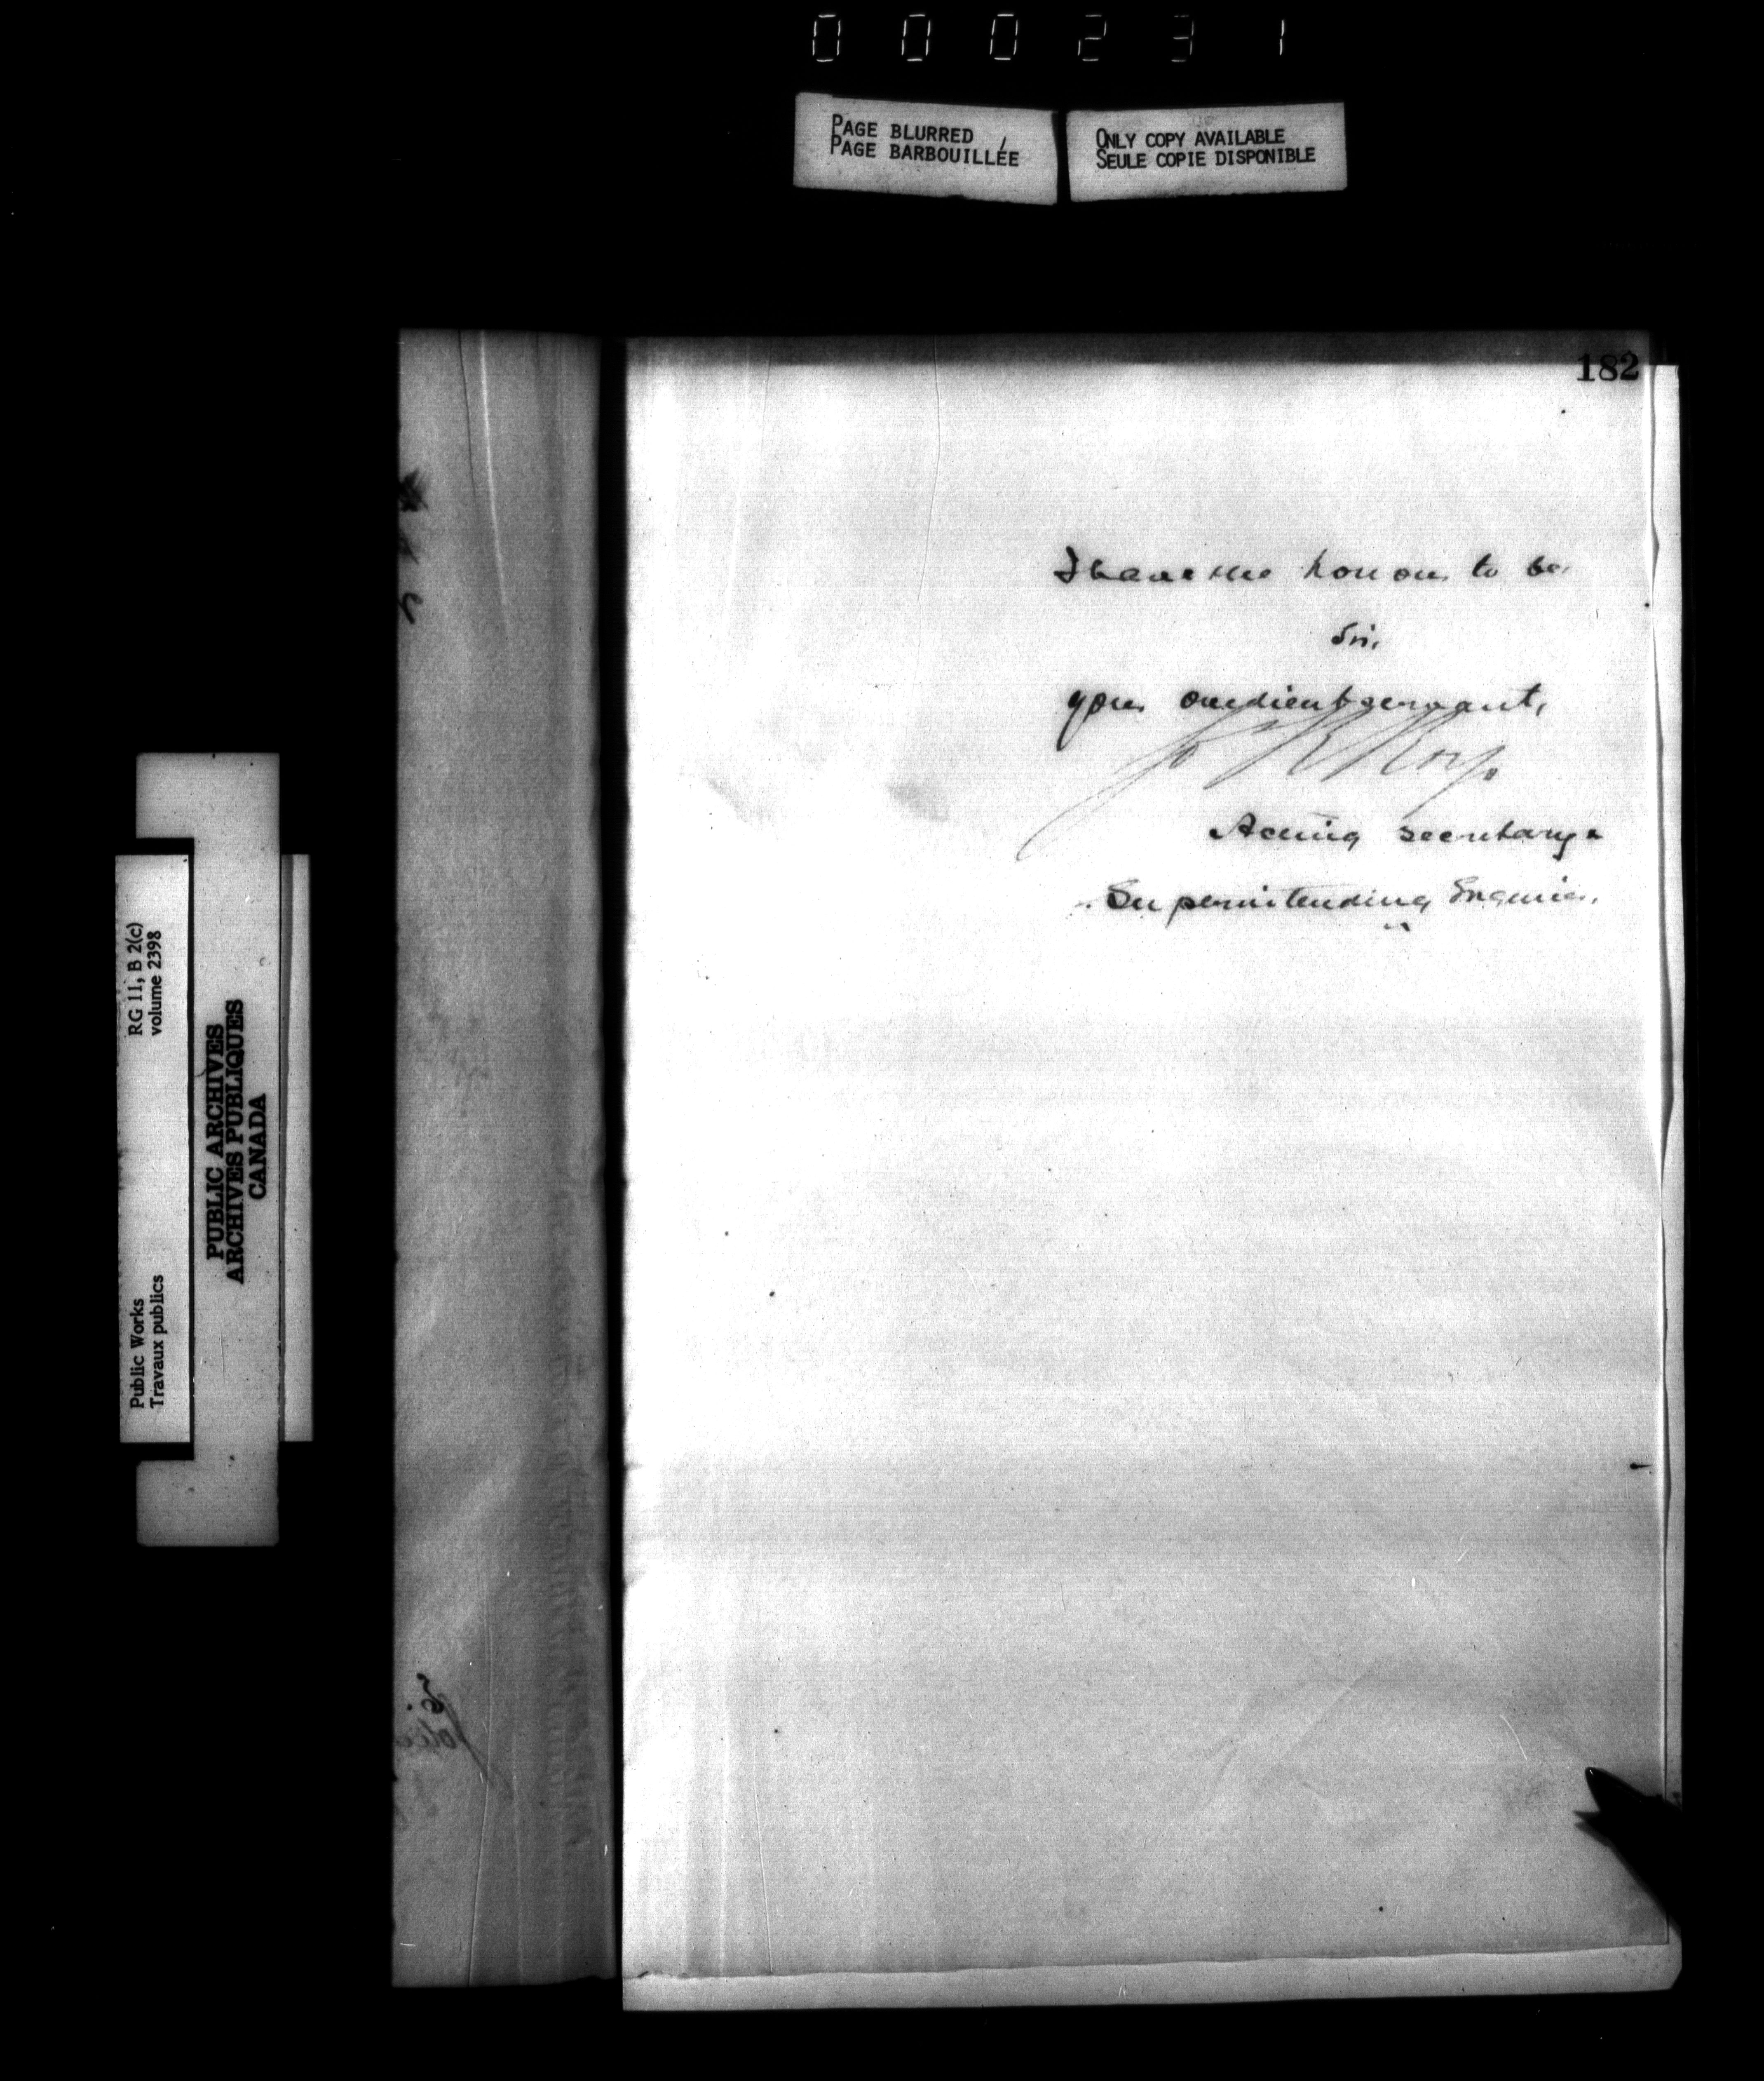 000231
PAGE BLURRED
PAGE BARBOUILLÉE
ONLY COPY AVAILABLE
SEULE COPIE DISPONIBLE
182
I have the honour to be
Sir,
your obedient servant,
Acting Secretary &
Superintending Engineer.
RG 11, B 2(c)
volume 2398
Public Works
Travaux publics
PUBLIC ARCHIVES
ARCHIVES PUBLIQUES
CANADA